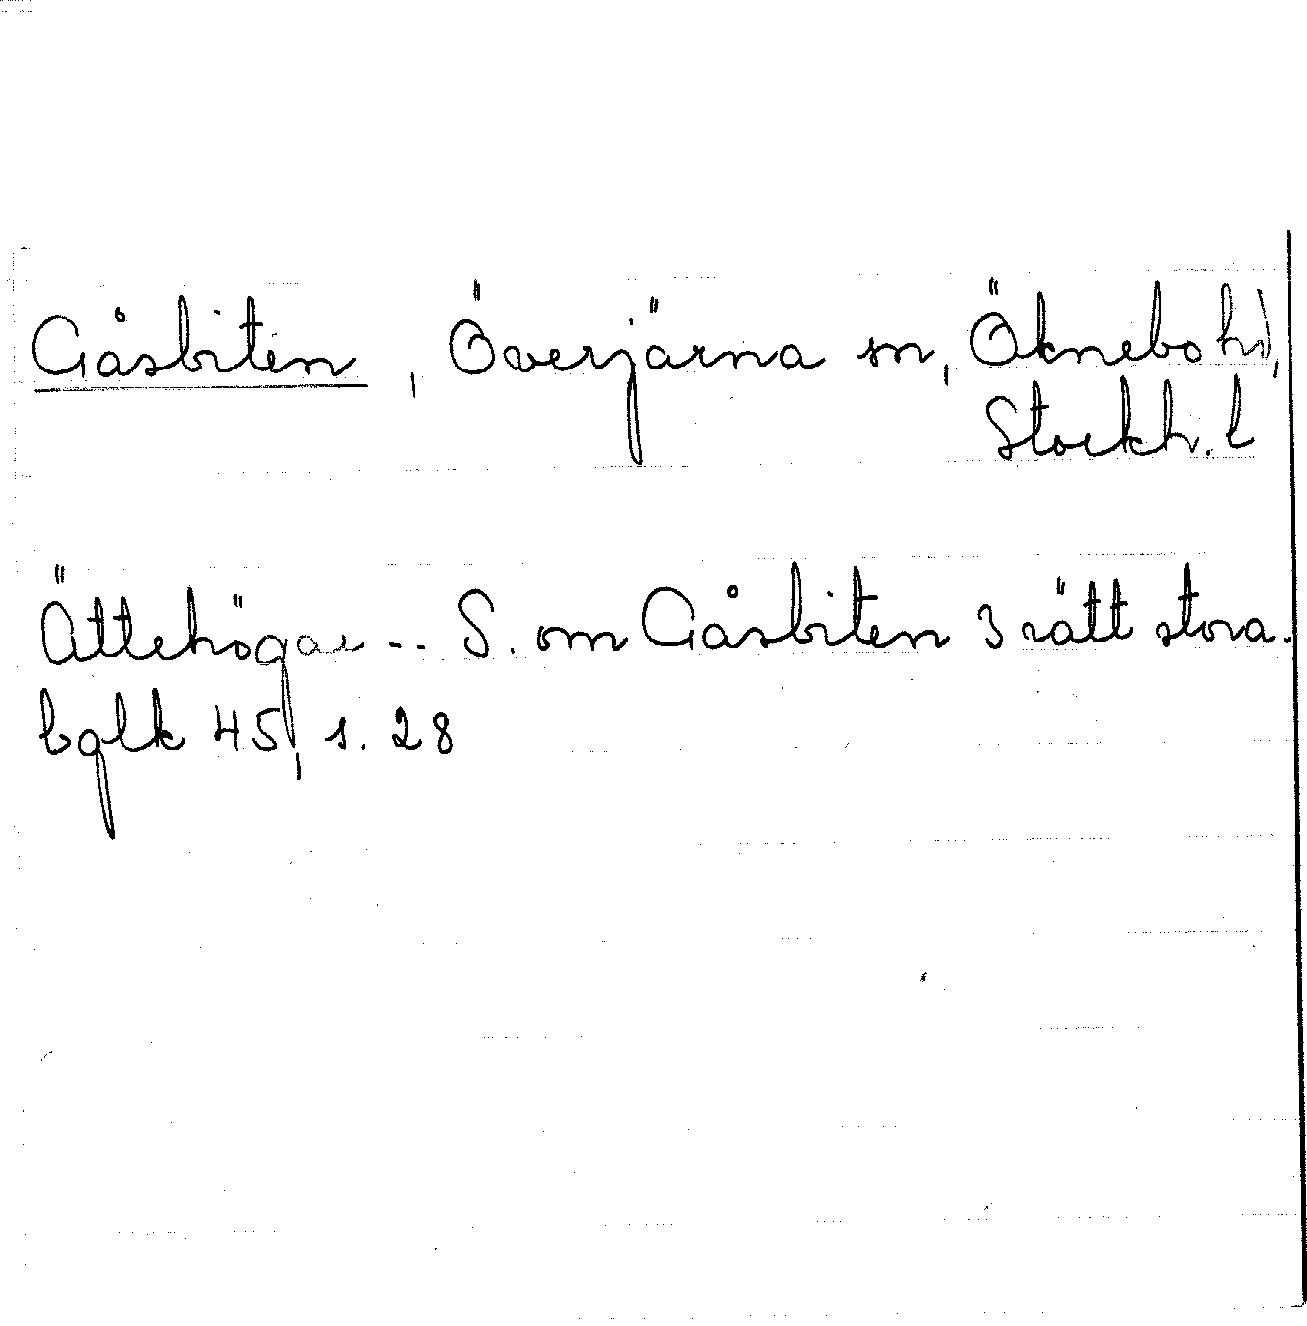 Gåsbiten, Överjärna sn, Öknebo hd,
Stockh. l
Ättehögar -- S. om Gåsbiten 3 rätt stora.
bglk 45, s. 28